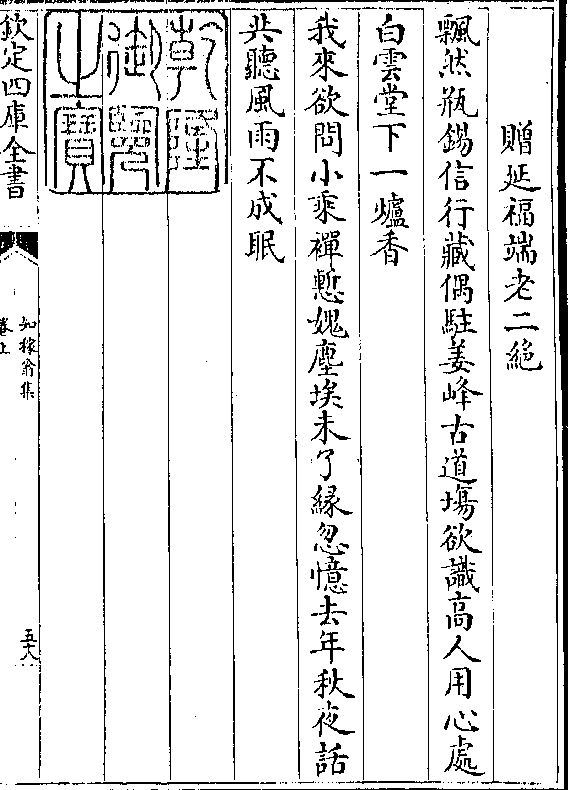 贈延福端老二絶
飄然瓶錫信行藏偶駐姜峰古道塲欲識高人用心處
白雲堂下一爐香
我來欲問小乘禪慙媿塵埃未了縁忽憶去年秋夜話
共聽風雨不成眠
乾隆
御覽
之寶
欽定四庫全書
知稼翁集
卷上
五十八